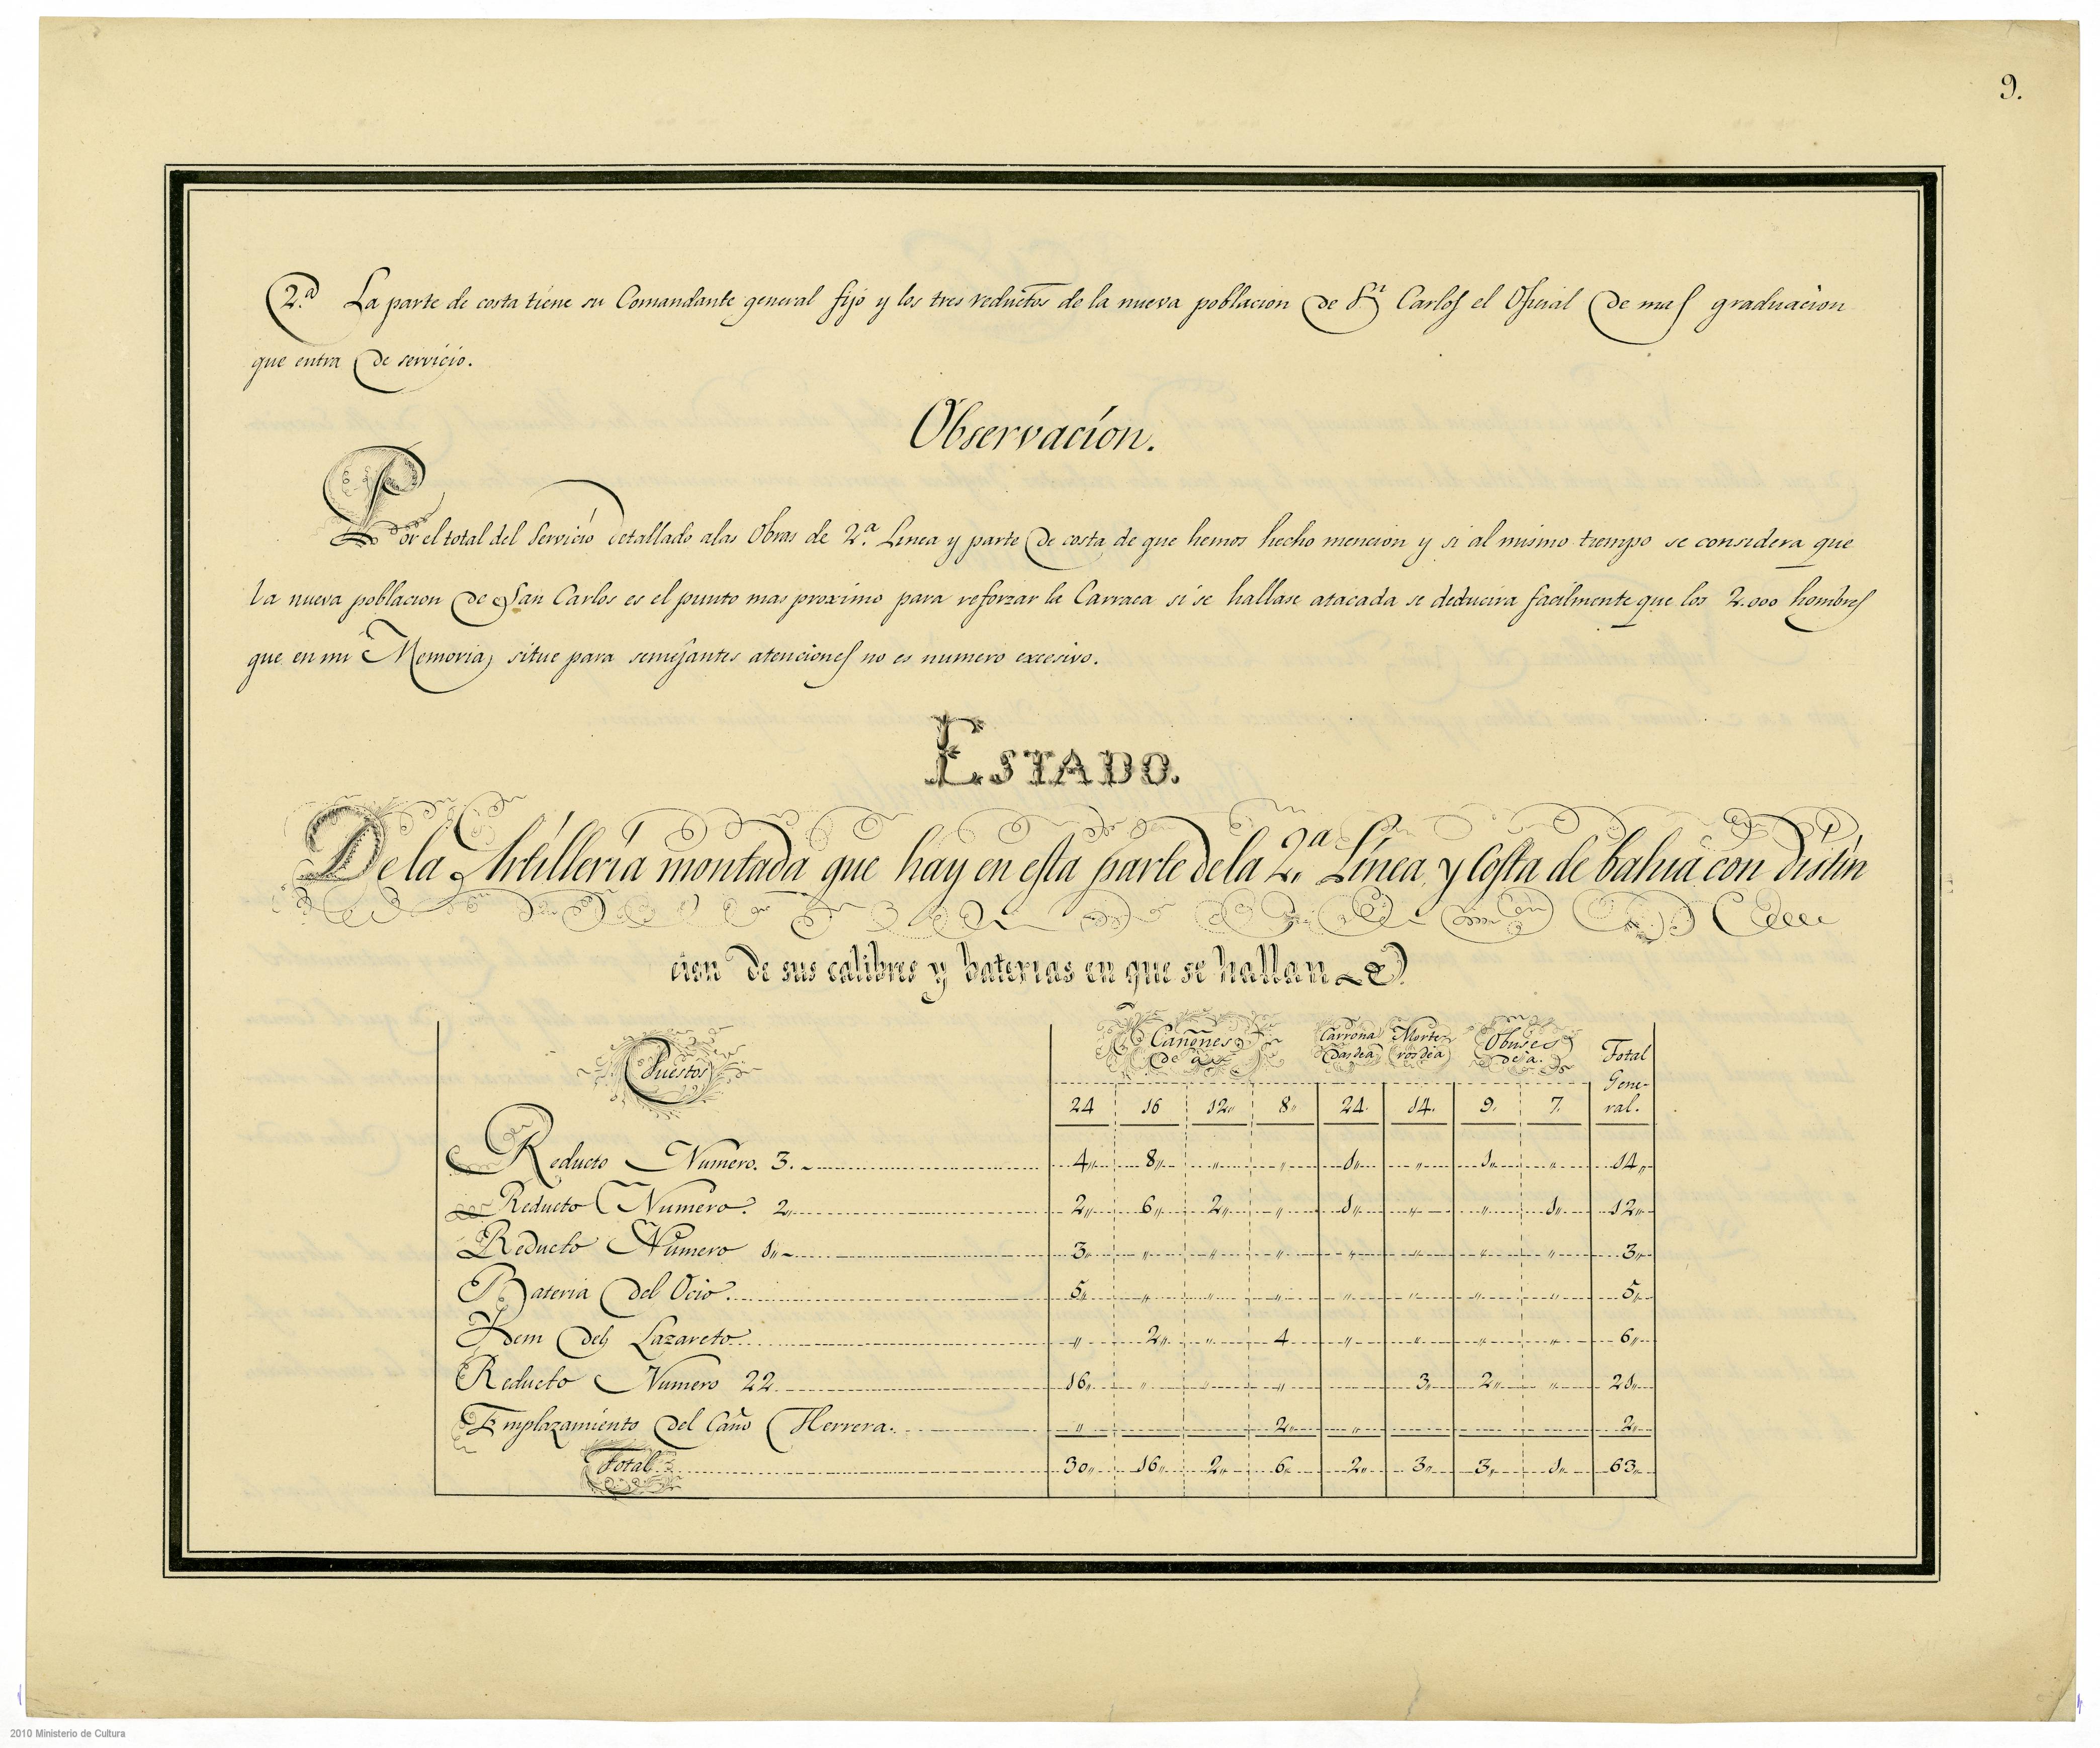 9.
2.ª La parte de costa tiene su Comandante general fijo y los tres reductos de la nueva poblacion de S.n Carlos el Oficial de mas graduacion
que entra de servicio.
Observacion.
Por el total del Servicio detallado a las Obras de 2.ª Linea y parte de costa de que hemos hecho mencion y si al mismo tiempo se considera que
la nueva poblacion de San Carlos es el punto mas proximo para reforzar la Carraca si se hallase atacada se deducira facilmente que los 2.000 hombres
que en mi Memoria situe para semejantes atenciones no es numero excesivo.
ESTADO.
De la Artilleria montada que hay en esta parte de la 2.ª Linea, y Costa de bahia con distin
cion de sus calibres y baterias en que se hallan
Puestos Cañones de à Carronadas de à Morteros de à Obuses de à. Total General.
24 16 12,, 8,, 24. 14. 9. 7.
Reducto Numero. 3. 4,, 8,, ,, ,, 1,, ,, 1,, ,, 14,,
Reducto Numero. 2,, 2,, 6,, 2,, ,, 1,, ,, ,, 1,, 12,,
Reducto Numero 1,, 3,, ,, ,, ,, ,, ,, ,, ,, 3,,
Bateria del Ocio. 5,, ,, ,, ,, ,, ,, ,, ,, 5,,
Ydem del Lazareto ,, 2,, ,, 4 ,, ,, ,, ,, 6,,
Reducto Numero 22. 16,, ,, ,, ,, 3,, 2,, ,, 21,,
Emplazamiento del Caño Herrera. ,, 2,, ,, 2,,
Total 30,, 16,, 2,, 6,, 2,, 3,, 3,, 1,, 63,,
2010 Ministerio de Cultura